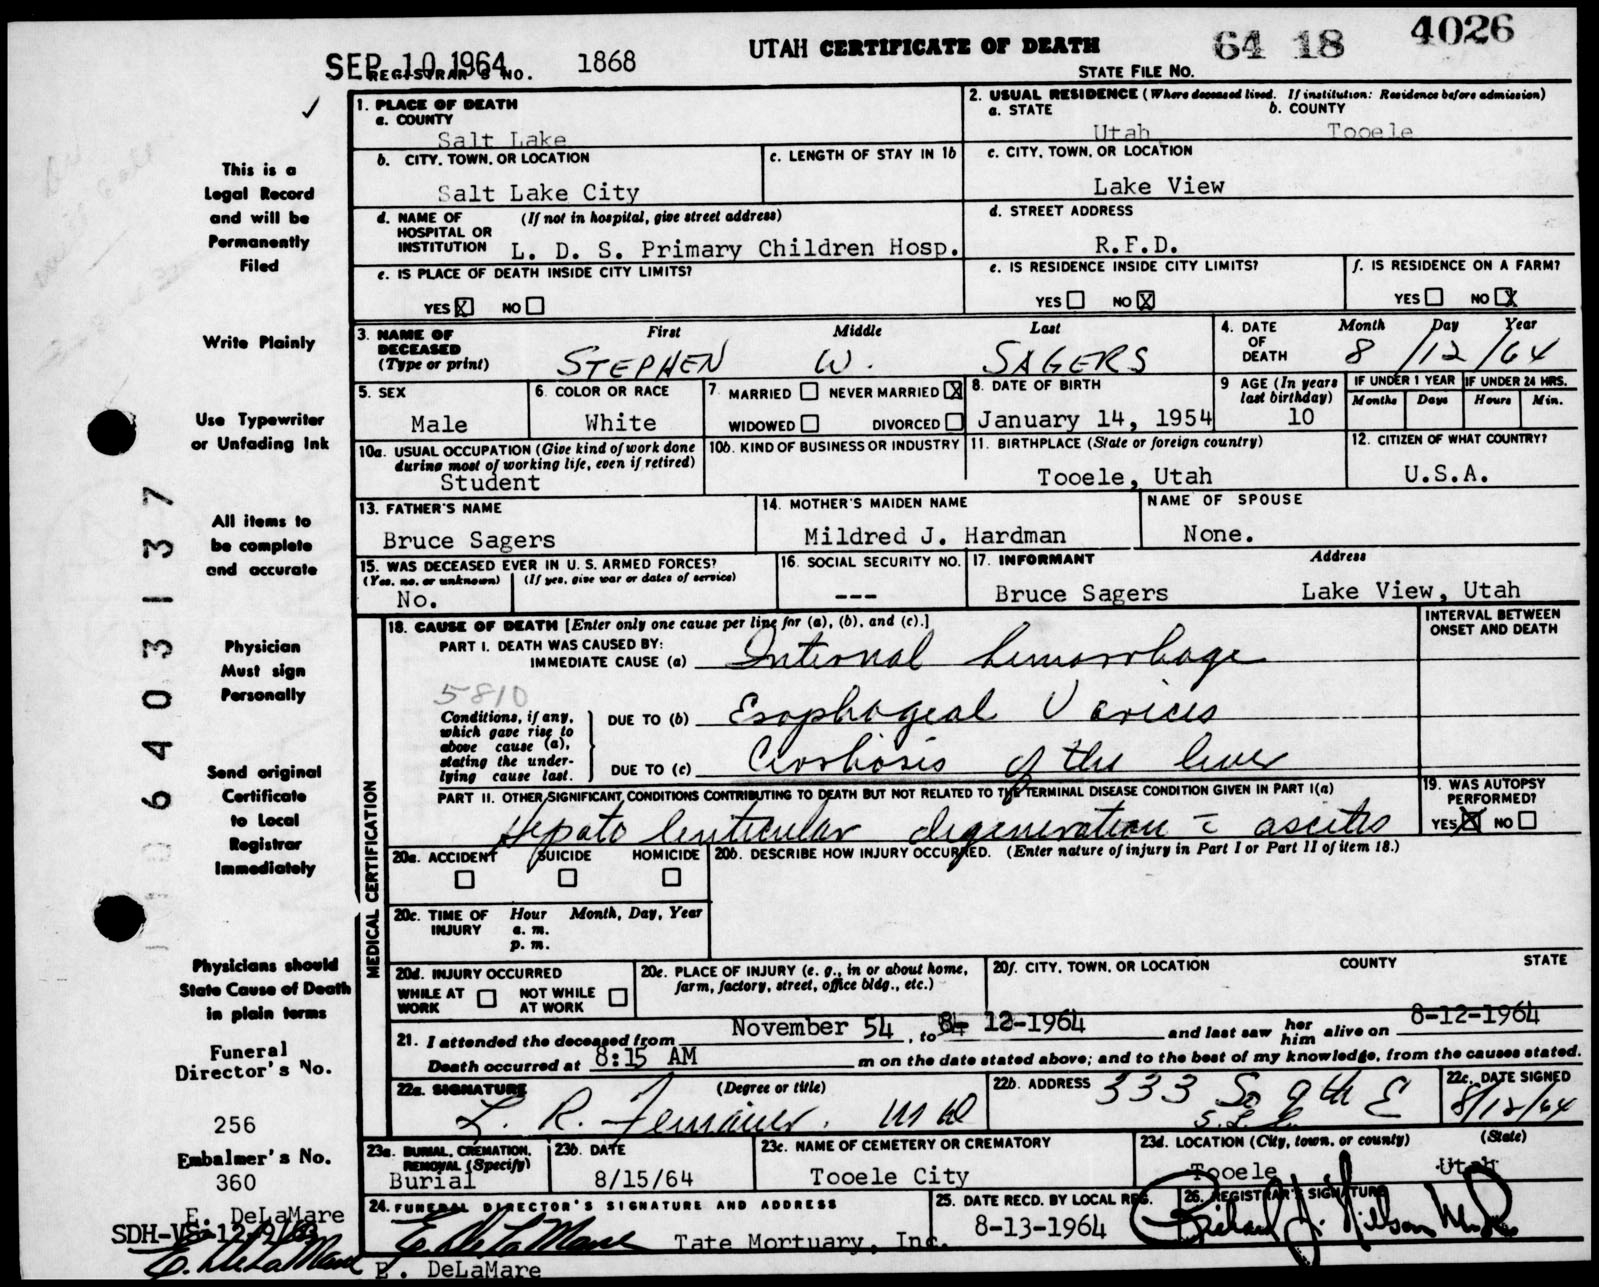 SEP 10 1964 REGISTRAR'S NO. 1868 UTAH CERTIFICATE OF DEATH STATE FILE NO. 64 18 4026
This is a
Legal Record
and will be
Permanently
Filed
Write Plainly
Use Typewriter
or Unfading Ink
All items to
be complete
and accurate
Physician
Must sign
Personally
Send original
Certificate
to Local
Registrar
Immediately
Physicians should
State Cause of Death
in plain terms
Funeral
Director's No.
256
Embalmer's No.
360
E. DeLaMare
E. DeLaMare
1. PLACE OF DEATH
a. COUNTY
Salt Lake
2. USUAL RESIDENCE (Where deceased lived. If institution: Residence before admission)
a. STATE b. COUNTY
Utah Tooele
b. CITY, TOWN, OR LOCATION
Salt Lake City
c. LENGTH OF STAY IN 1b
c. CITY, TOWN, OR LOCATION
Lake View
d. NAME OF HOSPITAL OR INSTITUTION (If not in hospital, give street address)
L. D. S. Primary Children Hosp.
d. STREET ADDRESS
R.F.D.
e. IS PLACE OF DEATH INSIDE CITY LIMITS?
YES X NO
e. IS RESIDENCE INSIDE CITY LIMITS?
YES NO X
f. IS RESIDENCE ON A FARM?
YES NO X
3. NAME OF DECEASED (Type or print)
First Middle Last
STEPHEN W. SAGERS
4. DATE OF DEATH
Month Day Year
8 /12 /64
5. SEX
Male
6. COLOR OR RACE
White
7. MARRIED NEVER MARRIED X
WIDOWED DIVORCED
8. DATE OF BIRTH
January 14, 1954
9 AGE (In years last birthday)
10
IF UNDER 1 YEAR
Months Days
IF UNDER 24 HRS.
Hours Min.
10a. USUAL OCCUPATION (Give kind of work done during most of working life, even if retired)
Student
10b. KIND OF BUSINESS OR INDUSTRY
11. BIRTHPLACE (State or foreign country)
Tooele, Utah
12. CITIZEN OF WHAT COUNTRY?
U.S.A.
13. FATHER'S NAME
Bruce Sagers
14. MOTHER'S MAIDEN NAME
Mildred J. Hardman
NAME OF SPOUSE
None.
15. WAS DECEASED EVER IN U. S. ARMED FORCES?
(Yes, no, or unknown) (If yes, give war or dates of service)
No.
16. SOCIAL SECURITY NO.
---
17. INFORMANT Address
Bruce Sagers Lake View, Utah
MEDICAL CERTIFICATION
18. CAUSE OF DEATH [Enter only one cause per line for (a), (b), and (c).]
INTERVAL BETWEEN ONSET AND DEATH
PART I. DEATH WAS CAUSED BY:
IMMEDIATE CAUSE (a) Internal hemorrhage
5810
Conditions, if any, which gave rise to above cause (a), stating the underlying cause last.
DUE TO (b) Esophageal Varices
DUE TO (c) Cirrhosis of the liver
PART II. OTHER SIGNIFICANT CONDITIONS CONTRIBUTING TO DEATH BUT NOT RELATED TO THE TERMINAL DISEASE CONDITION GIVEN IN PART I(a)
Hepato lenticular degeneration c ascites
19. WAS AUTOPSY PERFORMED?
YES X NO
20a. ACCIDENT SUICIDE HOMICIDE
20b. DESCRIBE HOW INJURY OCCURRED. (Enter nature of injury in Part I or Part II of item 18.)
20c. TIME OF INJURY Hour Month, Day, Year
a. m.
p. m.
20d. INJURY OCCURRED
WHILE AT WORK NOT WHILE AT WORK
20e. PLACE OF INJURY (e. g., in or about home, farm, factory, street, office bldg., etc.)
20f. CITY, TOWN, OR LOCATION COUNTY STATE
21. I attended the deceased from November 54, to 8- 12-1964 and last saw her him alive on 8-12-1964
Death occurred at 8:15 AM m on the date stated above; and to the best of my knowledge, from the causes stated.
22a. SIGNATURE (Degree or title)
L. R. MD
22b. ADDRESS
333 So 9th E
S.L.C.
22c. DATE SIGNED
8/12/64
23a. BURIAL, CREMATION, REMOVAL (Specify)
Burial
23b. DATE
8/15/64
23c. NAME OF CEMETERY OR CREMATORY
Tooele City
23d. LOCATION (City, town, or county) (State)
Tooele Utah
24. FUNERAL DIRECTOR'S SIGNATURE AND ADDRESS
E. DeLaMare Tate Mortuary, Inc.
E. DeLaMare
25. DATE RECD. BY LOCAL REG.
8-13-1964
26. REGISTRAR'S SIGNATURE